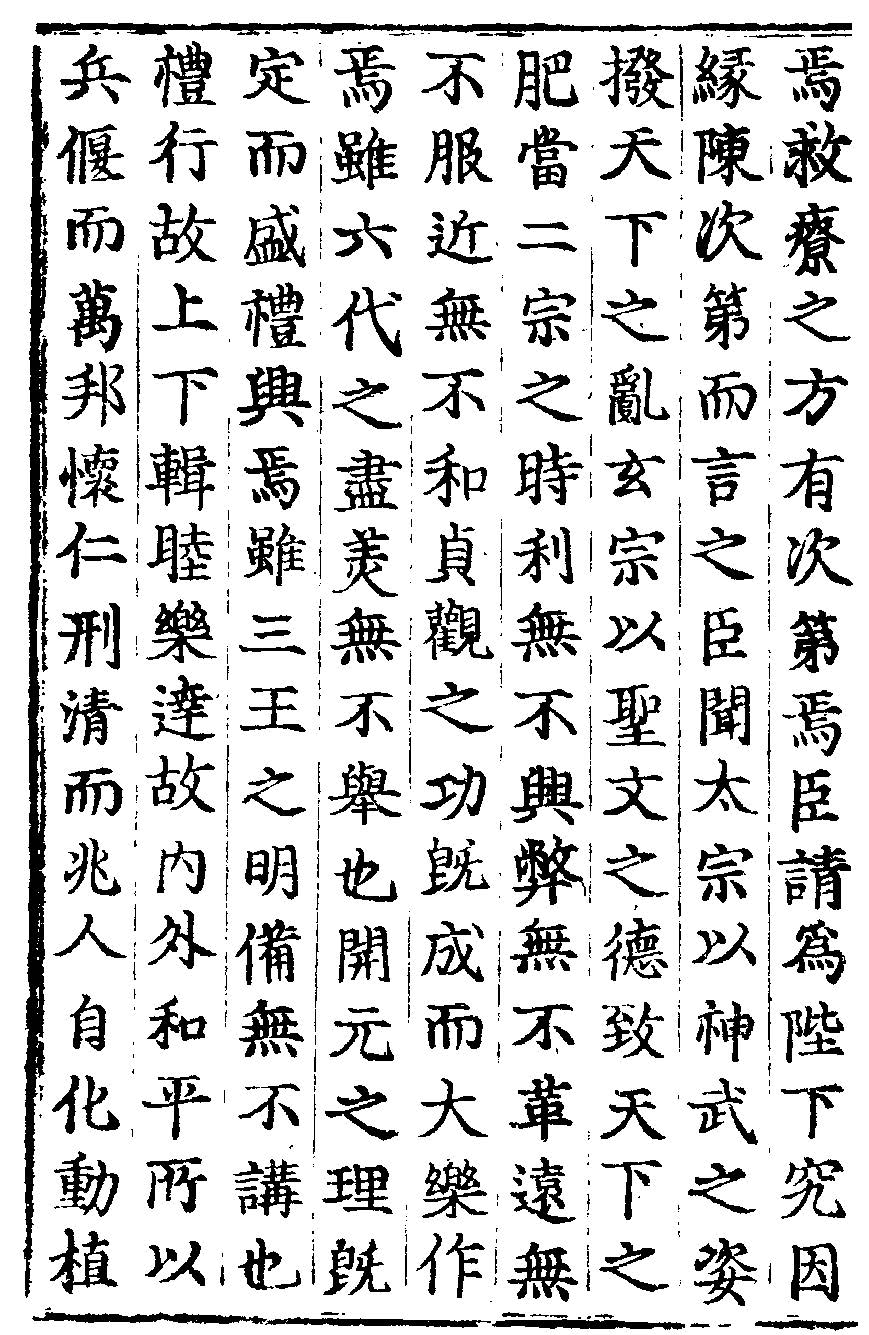 焉救療之方有次第焉臣請爲陛下究因
緣陳次第而言之臣聞太宗以神武之姿
撥天下之亂玄宗以聖文之德致天下之
肥當二宗之時利無不興弊無不革遠無
不服近無不和貞觀之功旣成而大樂作
焉雖六代之盡美無不舉也開元之理旣
定而盛禮興焉雖三王之明備無不講也
禮行故上下輯睦樂達故內外和平所以
兵偃而萬邦懷仁刑清而兆人自化動植